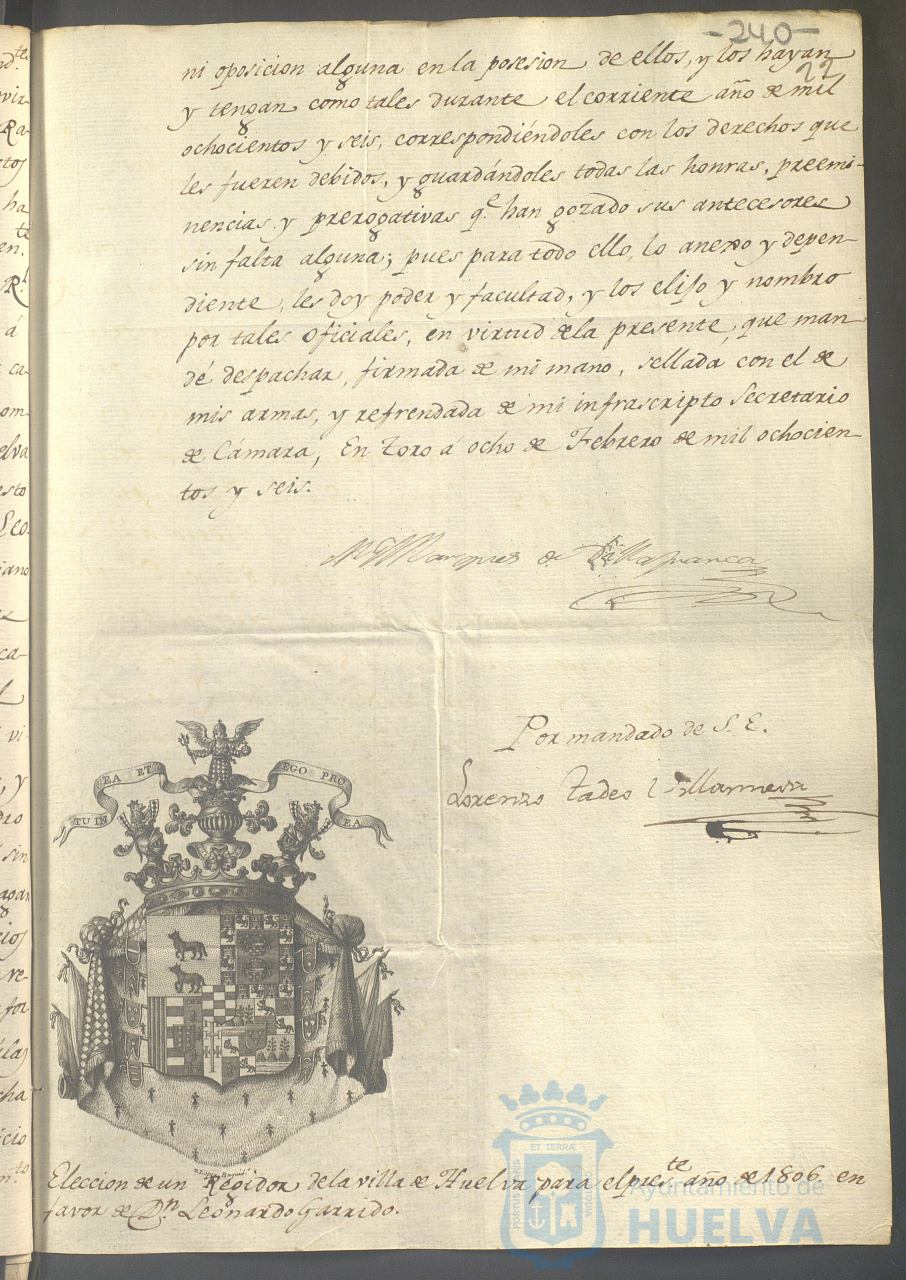 -240-
22
ni oposicion alguna en la posesion de ellos, y los hayan
y tengan como tales durante el corriente año de mil
ochocientos y seis, correspondiéndoles con los derechos que
les fueren debidos, y guardándoles todas las honras, preemi-
nencias y prerogativas q.e han gozado sus antecesores
sin falta alguna; pues para todo ello, lo anexo y depen-
diente, les doy poder y facultad, y los elijo y nombro
por tales Oficiales, en virtud de la presente, que man-
dé despachar, firmada de mi mano, sellada con el de
mis armas, y refrendada de mi infrascripto Secretario
de Cámara, En Toro á ocho de Febrero de mil ochocien-
tos y seis.
Marques de Villafranca
Por mandado de S. E.
Lorenzo Tadeo Villamesa
TU IN EA ET EGO PRO EA
Eleccion de un Regidor de la villa de Huelva para el pres.te año de 1806. en
favor de D.n Leonardo Garrido.
ET TERRÆ
PORTUS MARIS
CUSTODIA
Ayuntamiento de
HUELVA